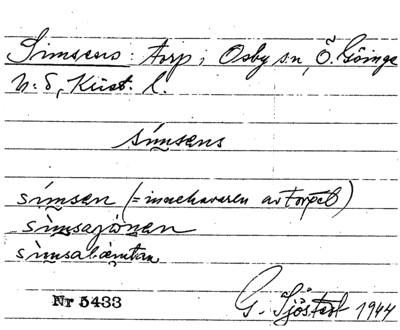 Simsens: torp i Osby sn, Ö. Göinge
h. d, Krist. l.
sı̀msens
sı́msen (= innehavaren av torpet)
sı̀msajónen
sı̀msabæ̀mtan
Nr 5433
G. Sjöstedt 1944